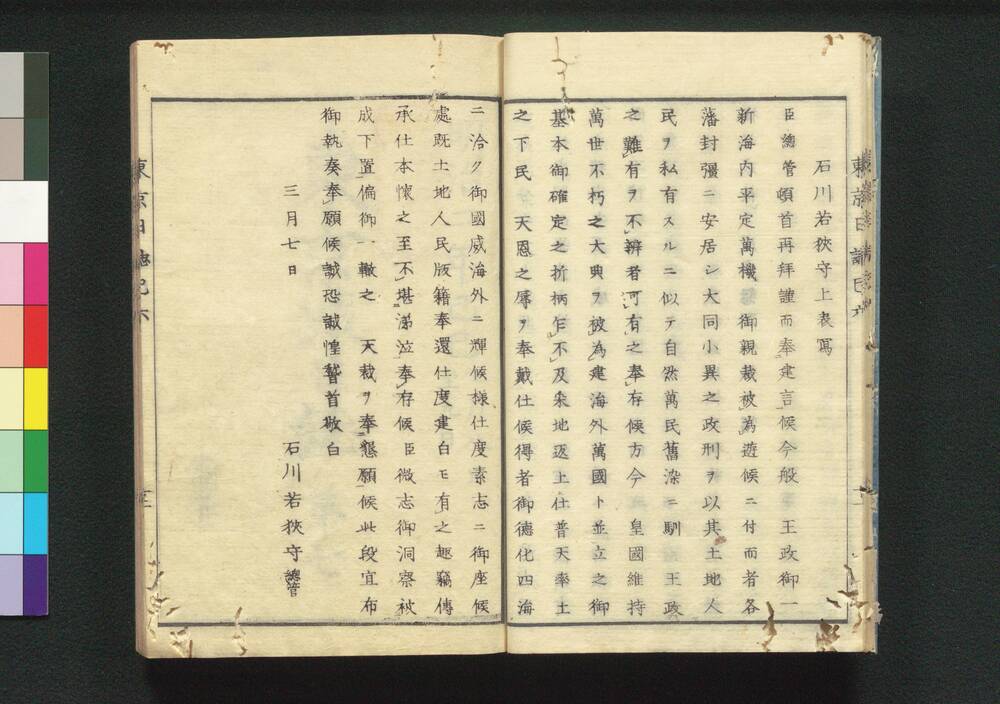 石川若狹守上表寫
臣總管頓首再拜謹而奉建言候今般　王政御一
新海內平定萬機　御親裁被爲遊候ニ付而者各
藩封彊ニ安居シ大同小異之政刑ヲ以其土地人
民ヲ私有スルニ似テ自然萬民舊染ニ馴　王政
之難有ヲ不辨者可有之奉存候方今　皇國維持
萬世不朽之大典ヲ被爲建海外萬國ト並立之御
基本御確定之折柄乍不及采地返上仕普天率土
之下民　天恩之辱ヲ奉戴仕候得者御德化四海
ニ洽ク御國威海外ニ輝候樣仕度素志ニ御座候
處既土地人民版籍奉還仕度建白モ有之趣竊傳
承仕本懷之至不堪涕泣奉存候臣微志御洞察被
成下置偏御一轍之　天裁ヲ奉懇願候此段宜布
御執奏奉願候誠恐誠惶謹首敬白
三月七日
石川若狹守總管
東京日誌